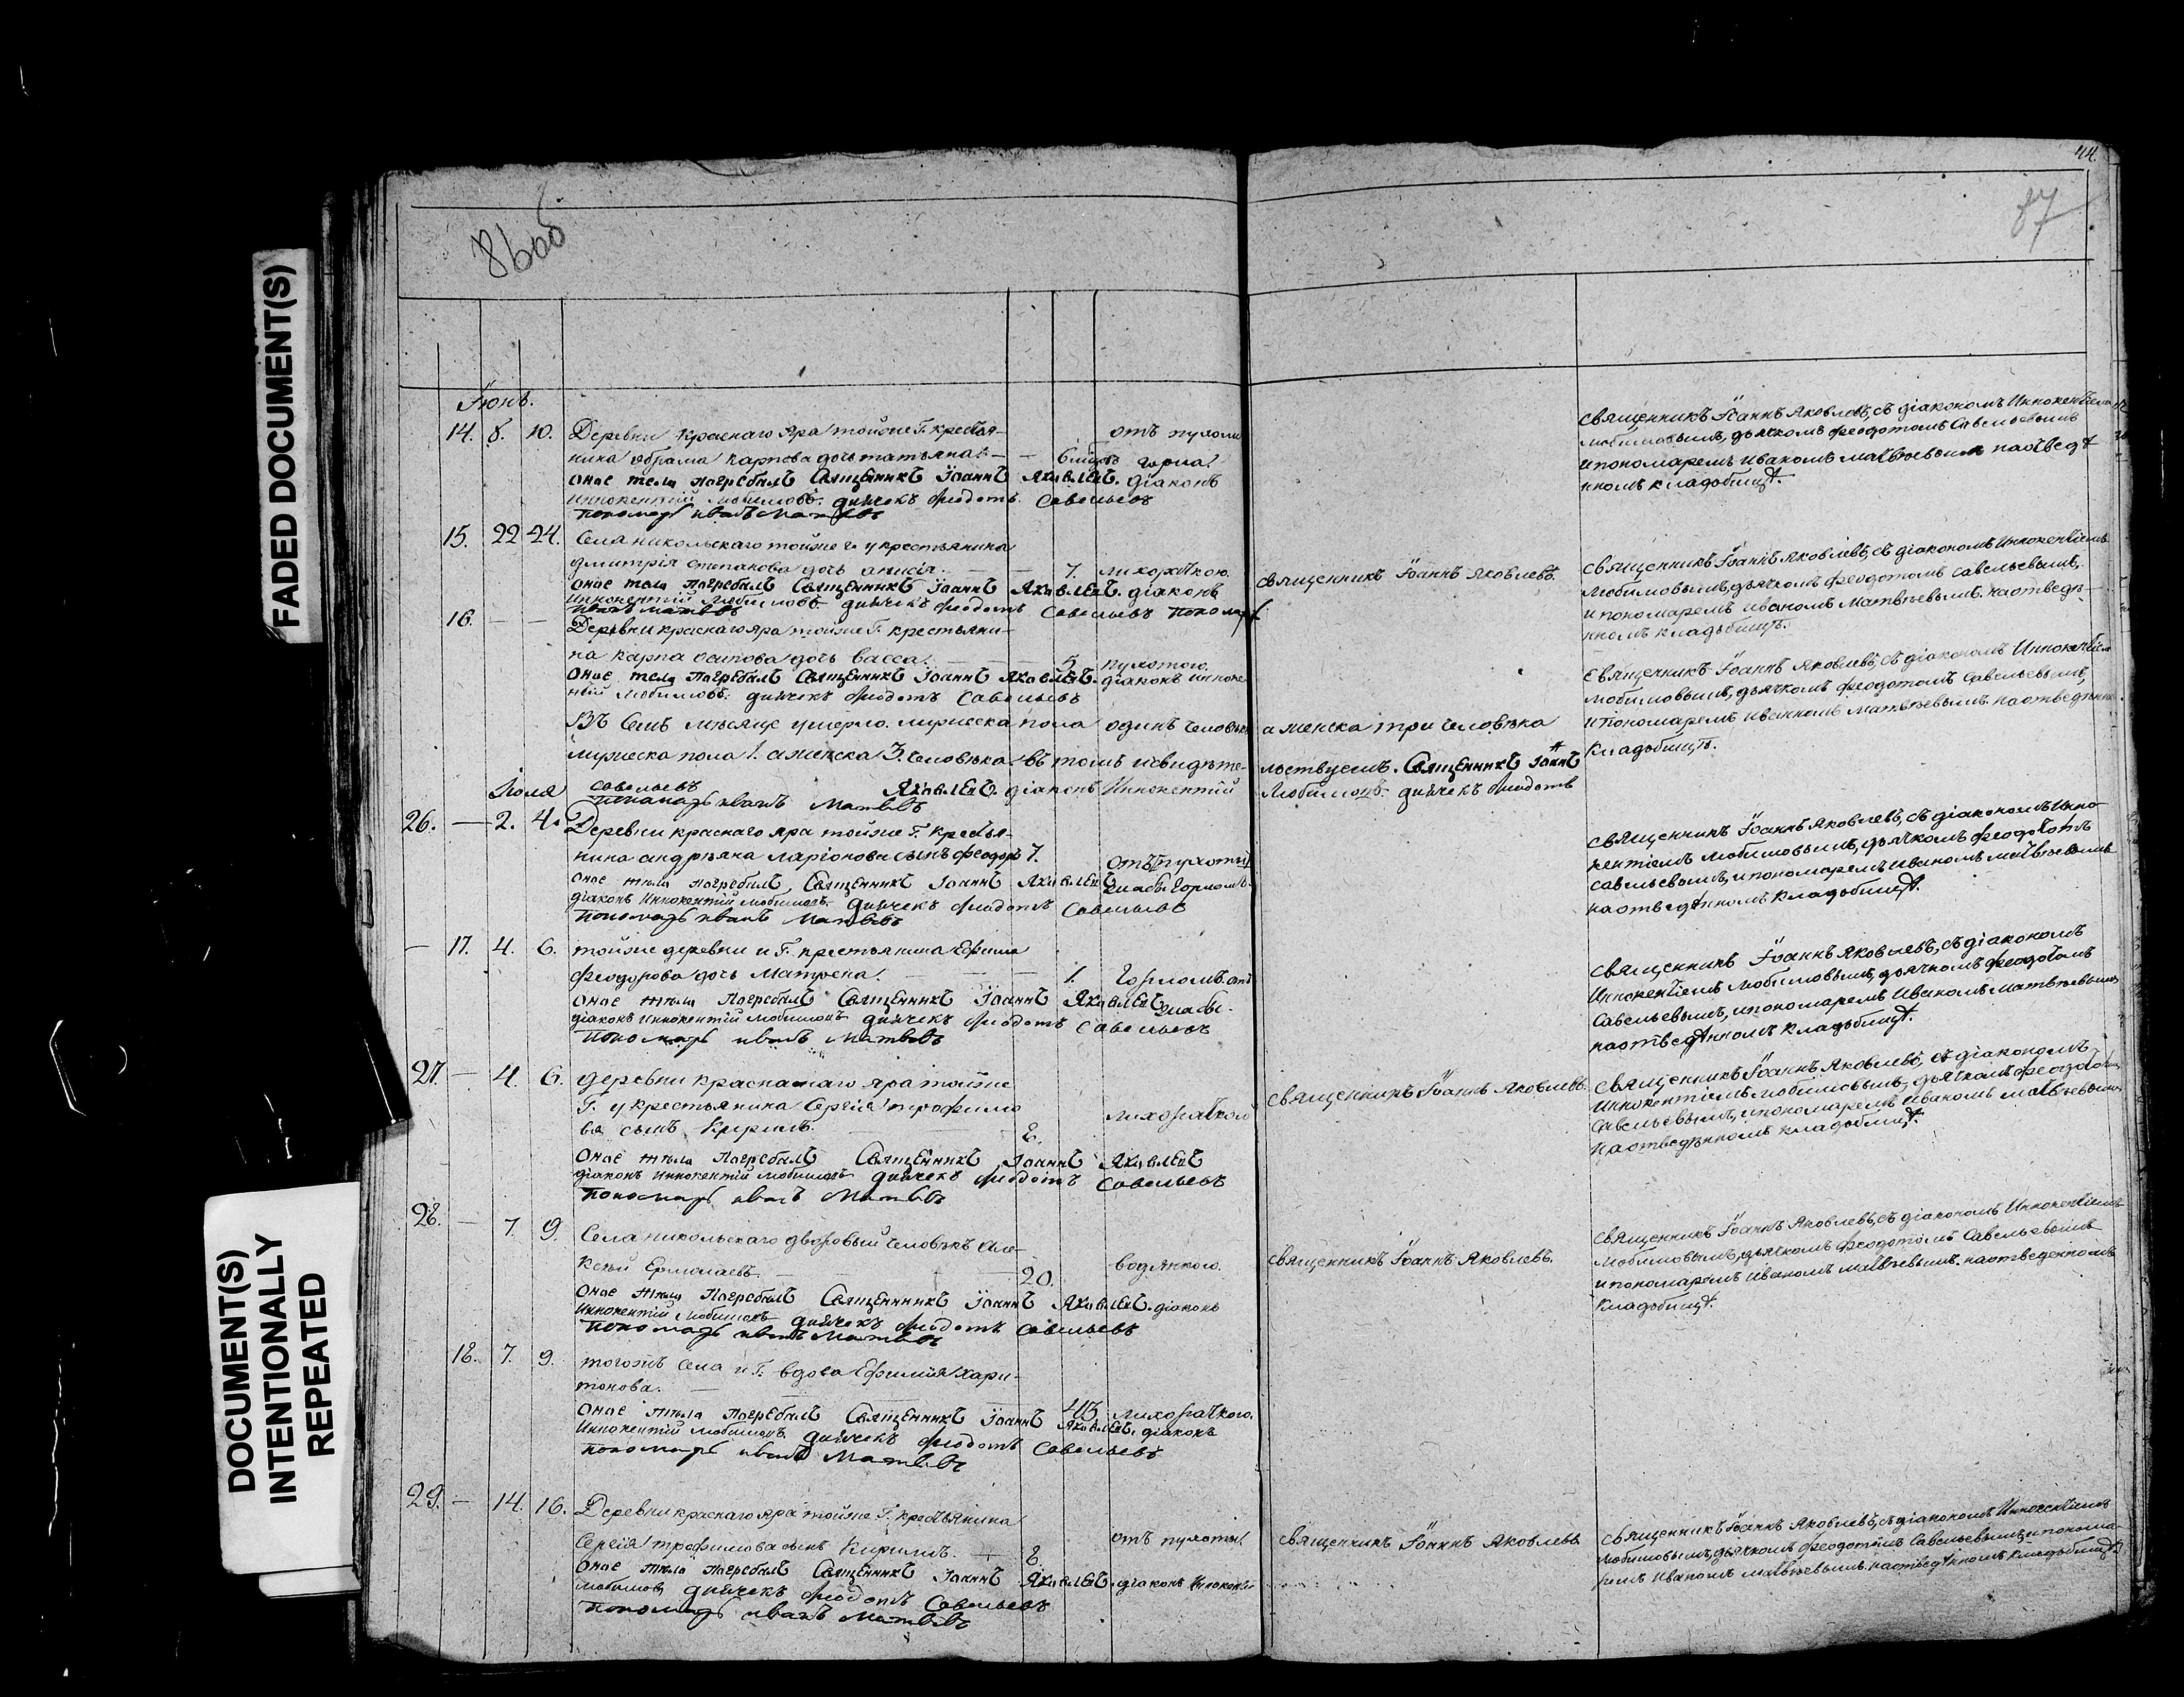 44.
87
86об
FADED DOCUMENT(S)
DOCUMENT(S)
INTENTIONALLY
REPEATED
Іюнь.
14. 8. 10. Деревни Краснаго Яра тойже Г. крестья-
нина Абрама Карпова дочь татьяна — 6 отъ
горла
оное тело погребалъ Священникъ Іоаннъ Яковлевъ. діаконъ
Иннокентій Любимовъ. дьячекъ Феодотъ Савельевъ
пономарь иванъ Матвѣевъ
священникъ Іоаннъ Яковлевъ, съ діакономъ Иннокентіемъ
любимовымъ, дьячкомъ феодотомъ Савельевымъ
и пономаремъ иваномъ матвѣевымъ на отведѣ
нномъ кладбищѣ.
15. 22 24. Села никольскаго тойже г. у крестьянина
дмитрія степанова дочь анисія. — 7. лихораткою.
оное тело погребалъ Священникъ Іоаннъ Яковлевъ. діаконъ
Иннокентій Любимовъ дьячекъ Феодотъ Савельевъ пономарь
иванъ матвѣевъ
священникъ Іоаннъ Яковлевъ.
священникъ Іоаннъ Яковлевъ, съ діакономъ Иннокентіемъ
Любимовымъ, дьячкомъ феодотомъ савельевымъ,
и пономаремъ иваномъ Матвѣевымъ. на отведѣ-
нномъ кладьбищѣ.
16. — — Деревни краснаго яра тойже Г. крестьяни-
на карпа осипова дочь васса. — 5. пухотою.
Оное тело погребалъ Священникъ Іоаннъ Яковлевъ. діаконъ инноке-
нтій Любимовъ. дьячекъ Феодотъ Савельевъ
священникъ Іоаннъ Яковлевъ, съ діакономъ Иннокентіемъ
любимовымъ, дьячкомъ феодотомъ савельевымъ,
и пономаремъ иваномъ матвѣевымъ. на отведѣнно
кладбищѣ.
Въ семъ мѣсяце умерло. мужеска пола одинъ человѣкъ а женска три человѣка
мужеска пола 1. а женска 3. человѣка. въ томъ и свидѣте- льствуемъ. Священникъ Іоаннъ
Яковлевъ. діаконъ Иннокентій Любимовъ. дьячекъ Феодотъ
савельевъ
пономарь иванъ Матвѣевъ
Іюля
26. — 2. 4. Деревни краснаго яра тойже Г. крестья-
нина андрѣяна ларіонова сынъ феодоръ 7. отъ пухоты
горломъ.
оное тѣла погребалъ Священникъ Іоаннъ Яковлевъ
діаконъ Иннокентій Любимовъ. дьячекъ Феодотъ Савельевъ
пономарь иванъ Матвѣевъ
священникъ Іоаннъ Яковлевъ, съ діакономъ Инно-
кентіемъ любимовымъ, дьячкомъ феодотомъ
савельевымъ, и пономаремъ иваномъ матвѣевымъ
на отведѣнномъ кладбищѣ.
— 17. 4. 6. тойже деревни и Г. крестьянина Ефима
феодорова дочь Матрена. — 1. Горломъ
оное тѣла Погребалъ Священникъ Іоаннъ Яковлевъ
діаконъ Иннокентій Любимовъ дьячекъ Феодотъ Савельевъ
пономарь иванъ Матвѣевъ
священникъ Іоаннъ Яковлевъ, съ діакономъ
Иннокентіемъ любимовымъ, дьячкомъ феодотомъ
савельевымъ, и пономаремъ иваномъ матвѣевымъ
на отведѣнномъ кладьбищѣ.
27. — 4. 6. деревни краснаго яра тойже
Г. у крестьянина Сергія трофимо
ва сынъ Кирилъ. 8. лихораткой
Оное тѣла погребалъ Священникъ Іоаннъ Яковлевъ
діаконъ Иннокентій Любимовъ дьячекъ Феодотъ Савельевъ
пономарь иванъ Матвѣевъ
священникъ Іоаннъ Яковлевъ.
священникъ Іоаннъ Яковлевъ, съ діакономъ
Иннокентіемъ любимовымъ, дьячкомъ феодотомъ
савельевымъ, и пономаремъ иваномъ матвѣевымъ
на отведѣнномъ кладбищѣ.
28. — 7. 9. Села никольскаго дворовый человѣкъ Але-
ксѣй Ермолаевъ — 20. водянкою.
оное тѣла Погребалъ Священникъ Іоаннъ Яковлевъ. діаконъ
Иннокентій Любимовъ дьячекъ Феодотъ Савельевъ
пономарь иванъ Матвѣевъ
священникъ Іоаннъ Яковлевъ.
священникъ Іоаннъ Яковлевъ, съ діакономъ Иннокентіемъ
любимовымъ, дьячкомъ феодотомъ Савельевымъ
и пономаремъ иваномъ матвѣевымъ. на отведенномъ
кладбищѣ.
18. 7. 9. тогожъ села и Г. вдова Ефимия Хари-
тонова. — 43 лихораткою.
оное тѣла погребалъ Священникъ Іоаннъ Яковлевъ. діаконъ
Иннокентій Любимовъ. дьячекъ Феодотъ Савельевъ
пономарь иванъ Матвѣевъ
29. — 14. 16. Деревни краснаго яра тойже Г. крестьянина
Сергія трофимова сынъ Кирилъ. — 8. отъ пухоты
Оное тѣла погребалъ Священникъ Іоаннъ Яковлевъ. діаконъ Инокентій
Любимовъ дьячекъ Феодотъ Савельевъ
пономарь иванъ Матвѣевъ
священникъ Іоаннъ Яковлевъ
священникъ Іоаннъ Яковлевъ, съ діакономъ Иннокентіемъ
любимовымъ, дьячкомъ феодотомъ Савельевымъ, и понома-
ремъ Иваномъ матвѣевымъ. на отведѣнномъ кладбищѣ